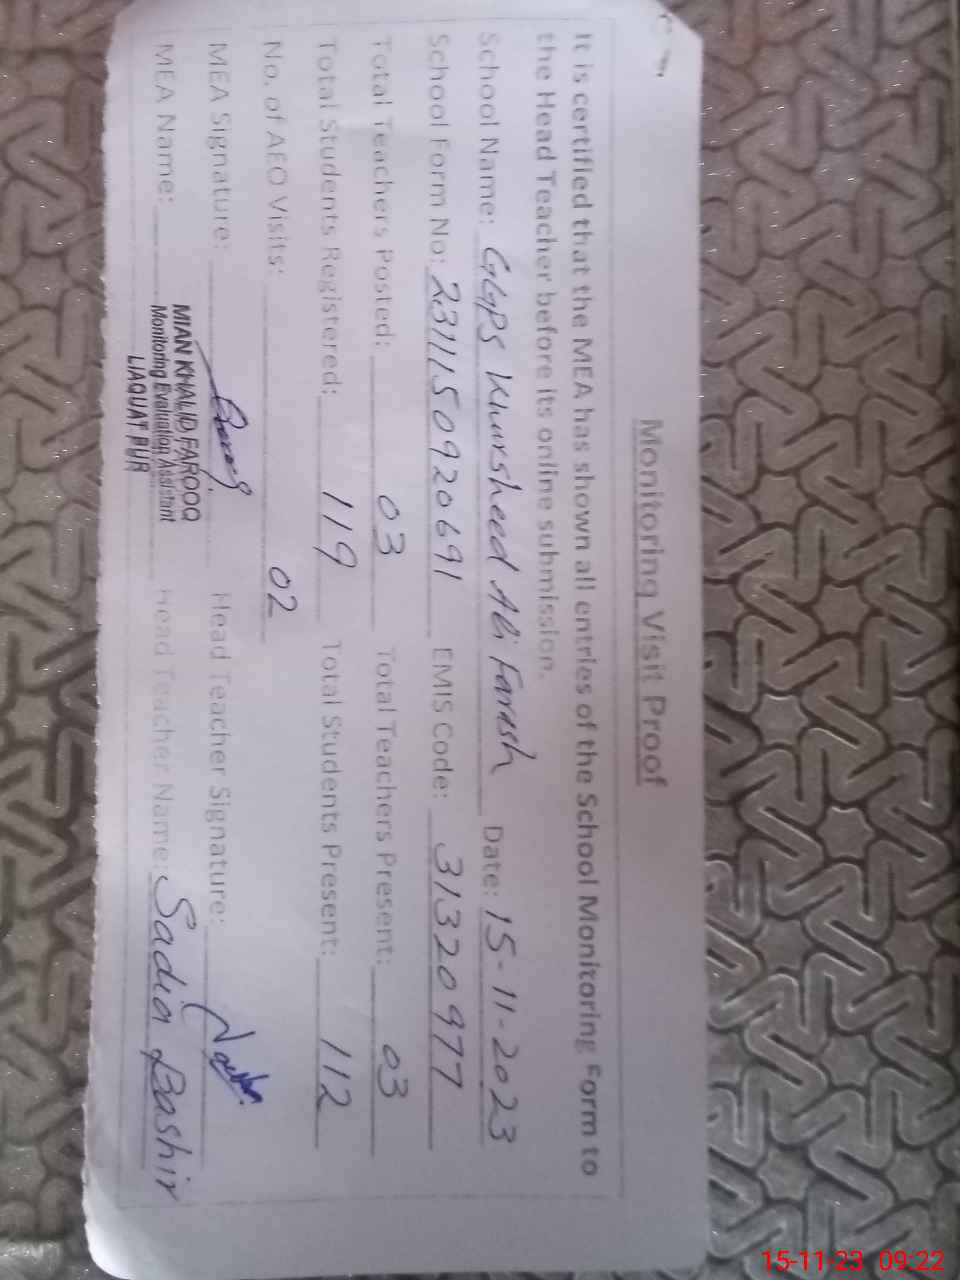 Monitoring Visit Proof
It is certified that the MEA has shown all entries of the School Monitoring Form to
the Head Teacher before its online submission.
School Name: GGPS Khursheed Abi Farash Date: 15-11-2023
School Form No: 231115092069 1 EMIS Code: 31320977
Total Teachers Posted: 03 Total Teachers Present: 03
Total Students Registered: 119 Total Students Present: 112
No. of AEO Visits: 02
MEA Signature: Head Teacher Signature:
MEA Name: MIAN KHALID FAROOQ Head Teacher Name: Sadia Bashir
Monitoring Evaluation Assistant
LIAQUAT PUR
15-11-23 09:22